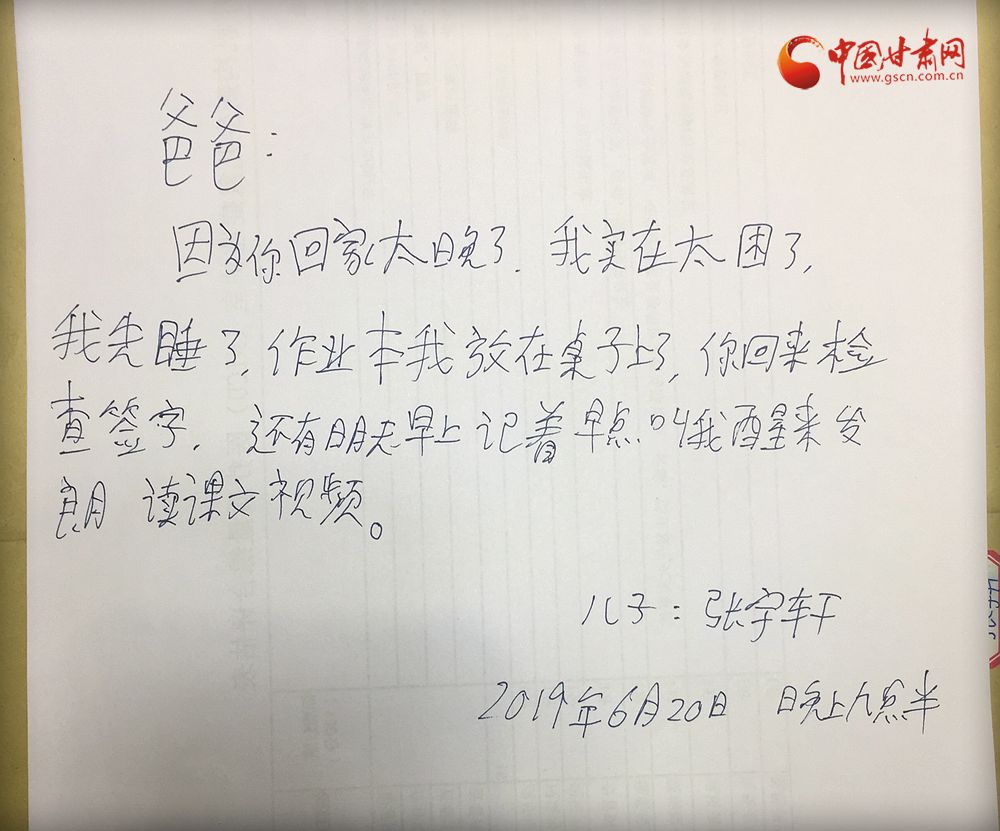 中国甘肃网
www.gscn.com.cn
爸爸:
因为你回家太晚了.我实在太困了,
我先睡了,作业本我放在桌子上了,你回来检
查签字.还有明天早上记着早点叫我醒来发
朗读课文视频。
儿子:张宇轩
2019年6月20日 晚上九点半